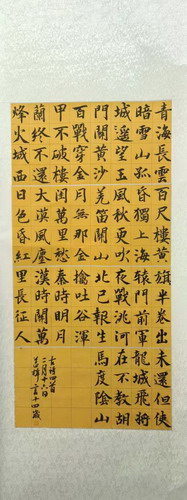 青海長雲
暗雪山孤
城遥望玉
門關黄沙
百戰穿金
甲不破樓
蘭終不還
烽火城西
百尺樓黄
昏獨上海
風秋更吹
羌笛關山
月無那金
閨萬里愁
大漠風塵
日色昏紅
旗半卷出
轅門前軍
夜戰洮河
北已報生
擒吐谷渾
秦時明月
漢時關萬
里長征人
未還但使
龍城飛將
在不教胡
馬度陰山
古诗四首
二月十六日
十四歲